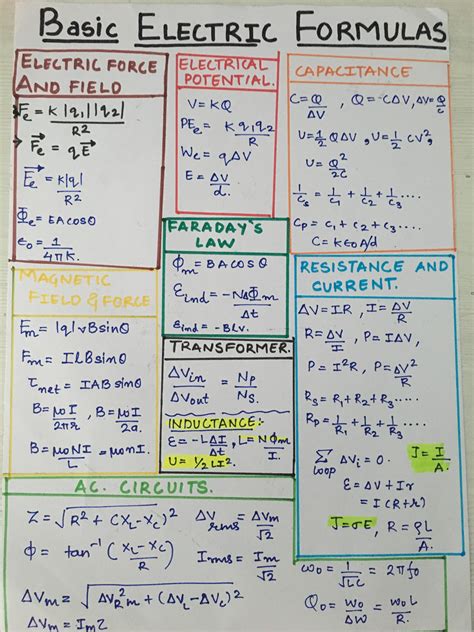 Basic Electric Formulas
ELECTRIC FORCE
AND FIELD
Fₑ = K|q₁||q₂| / R²
→ Fₑ = qE
Eₑ = K|q| / R²
Φₑ = EA cosθ
ε₀ = 1 / 4πK.
ELECTRICAL
POTENTIAL.
V = KQ
PEₑ = K q₁q₂ / R
W꜀ = qΔV
E = ΔV / d.
CAPACITANCE
C = Q / ΔV , Q = -CΔV, ΔV = Q / C
U = 1/2 QΔV, U = 1/2 CV²,
U = Q² / 2C
1/Cs = 1/C₁ + 1/C₂ + 1/C₃ ....
Cp = C₁ + C₂ + C₃ ....
C = KE0 A/d
FARADAY'S
LAW
Φm = BA COSθ
Ɛind = -NΔΦm / Δt
Ɛind = -BLV.
MAGNETIC
FIELD & FORCE
Fm = |q|vB sinθ
Fm = ILB sinθ
τnet = IAB sinθ
B = μ₀I / 2πr , B = μ₀I / 2a.
B = μ₀NI / L = μ₀nI.
TRANSFORMER.
ΔVin / ΔVout = Np / Ns.
INDUCTANCE:-
Ɛ = -LΔI / Δt, L = NΦm / I.
U = 1/2 LI².
RESISTANCE AND
CURRENT.
ΔV = IR, I = ΔV / R
R = ΔV / I, P = IΔV,
P = I²R, P = ΔV² / R
Rs = R₁ + R₂ + R₃ ....
Rp = 1/R₁ + 1/R₂ + 1/R₃ ....
Σ loop ΔVi = 0. J = I / A.
Ɛ = ΔV + Ir
= I (R+r)
J = σE, R = ρL / A.
AC. CIRCUITS.
Z = √R² + (XL - Xc)² ΔVrms = ΔVm / √2
Φ = tan⁻¹ (XL - Xc / R) Irms = Im / √2
ω₀ = 1 / √LC = 2πf₀
ΔVm = √ΔVR²m + (ΔVL - ΔVc)²
Q₀ = ω₀ / Δω = ω₀L / R
ΔVm = ImZ